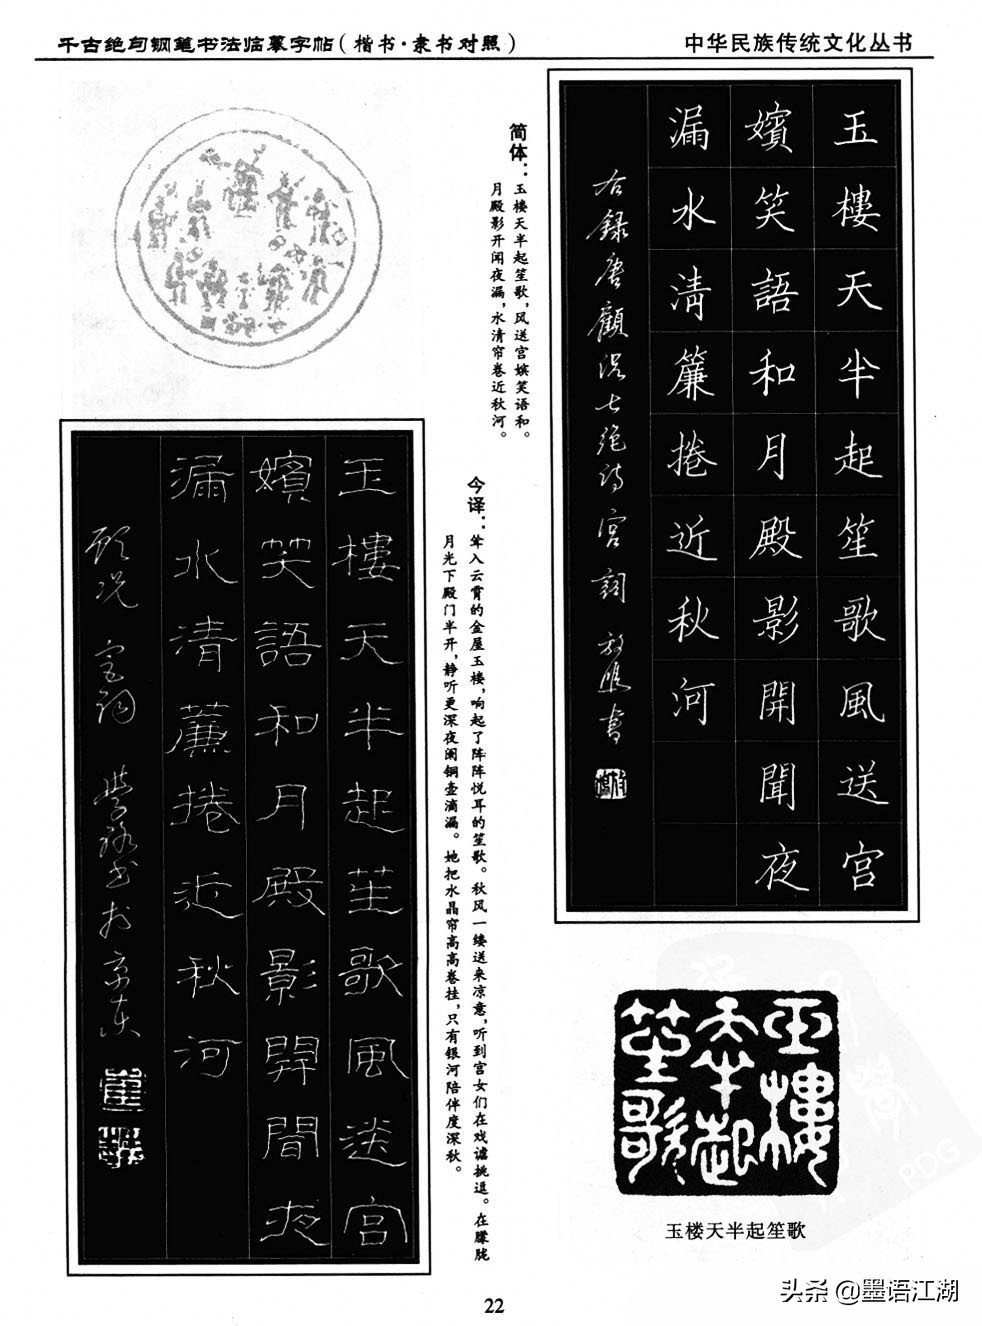 千古绝句钢笔书法临摹字帖（楷书·隶书对照）
中华民族传统文化丛书
玉樓天半起笙歌風送宫
嬪笑語和月殿影開聞夜
漏水清簾捲近秋河
右録唐顧况七绝詩宫詞
書
简体：玉楼天半起笙歌，风送宫嫔笑语和。
月殿影开闻夜漏，水清帘卷近秋河。
今译：耸入云霄的金屋玉楼，响起了阵阵悦耳的笙歌。秋风一缕送来凉意，听到宫女们在戏谑挑逗。在朦胧
月光下殿门半开，静听更深夜阑铜壶滴漏。她把水晶帘高高卷挂，只有银河陪伴度深秋。
玉樓天半起笙歌風送宫
嬪笑語和月殿影開聞夜
漏水清簾捲近秋河
顾况 宫词
书于京东
玉樓天半起笙歌
玉楼天半起笙歌
PDG
22
头条@墨语江湖